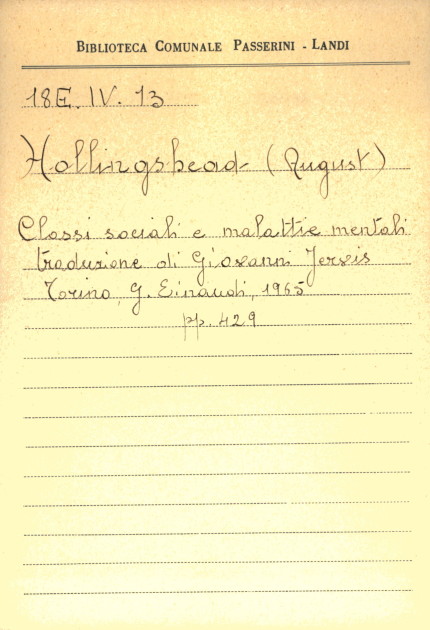 BIBLIOTECA COMUNALE PASSERINI - LANDI
18E. IV. 13
Hollingshead (August)
Classi sociali e malattie mentali
traduzione di Giovanni Jervis
Torino, G. Einaudi, 1965
pp. 429